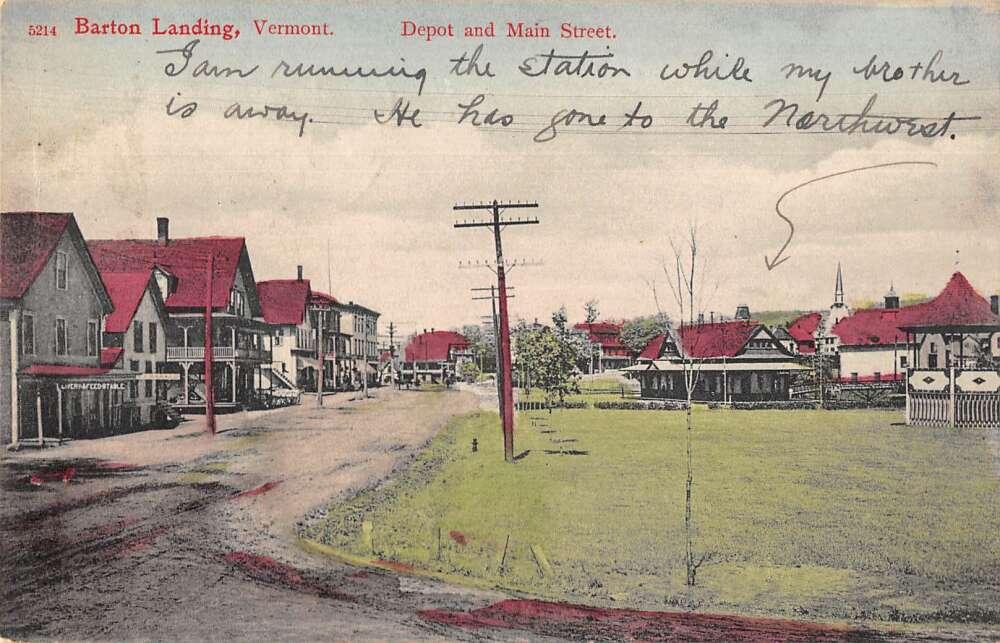 5214 Barton Landing, Vermont. Depot and Main Street.
I am running the station while my brother
is away. He has gone to the Northwest.
LIVERY & FEED STABLE